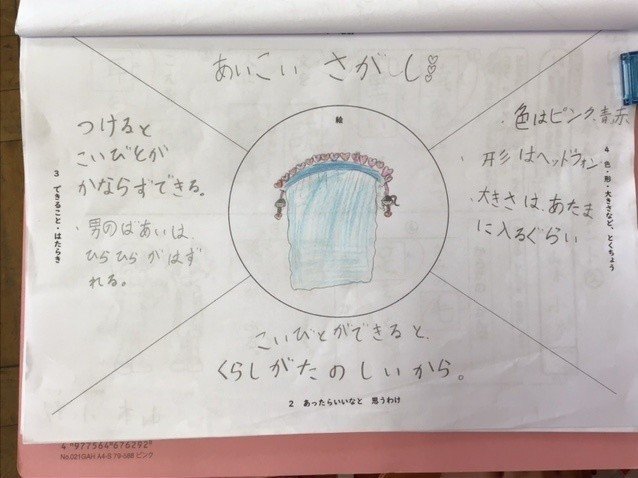 あいこい さがし
つけると
こいびとが
かならずできる。
・男のばあいは、
ひらひらがはず
れる。
3 できること・はたらき
絵
・色はピンク、青、赤
・形はヘッドフォン
・大きさは、あたま
に入るぐらい
4 色・形・大きさなど、とくちょう
こいびとができると、
くらしがたのしいから。
2 あったらいいなと 思うわけ
4"977564"676292"
No.021GAH A4-S 79-688 ピンク